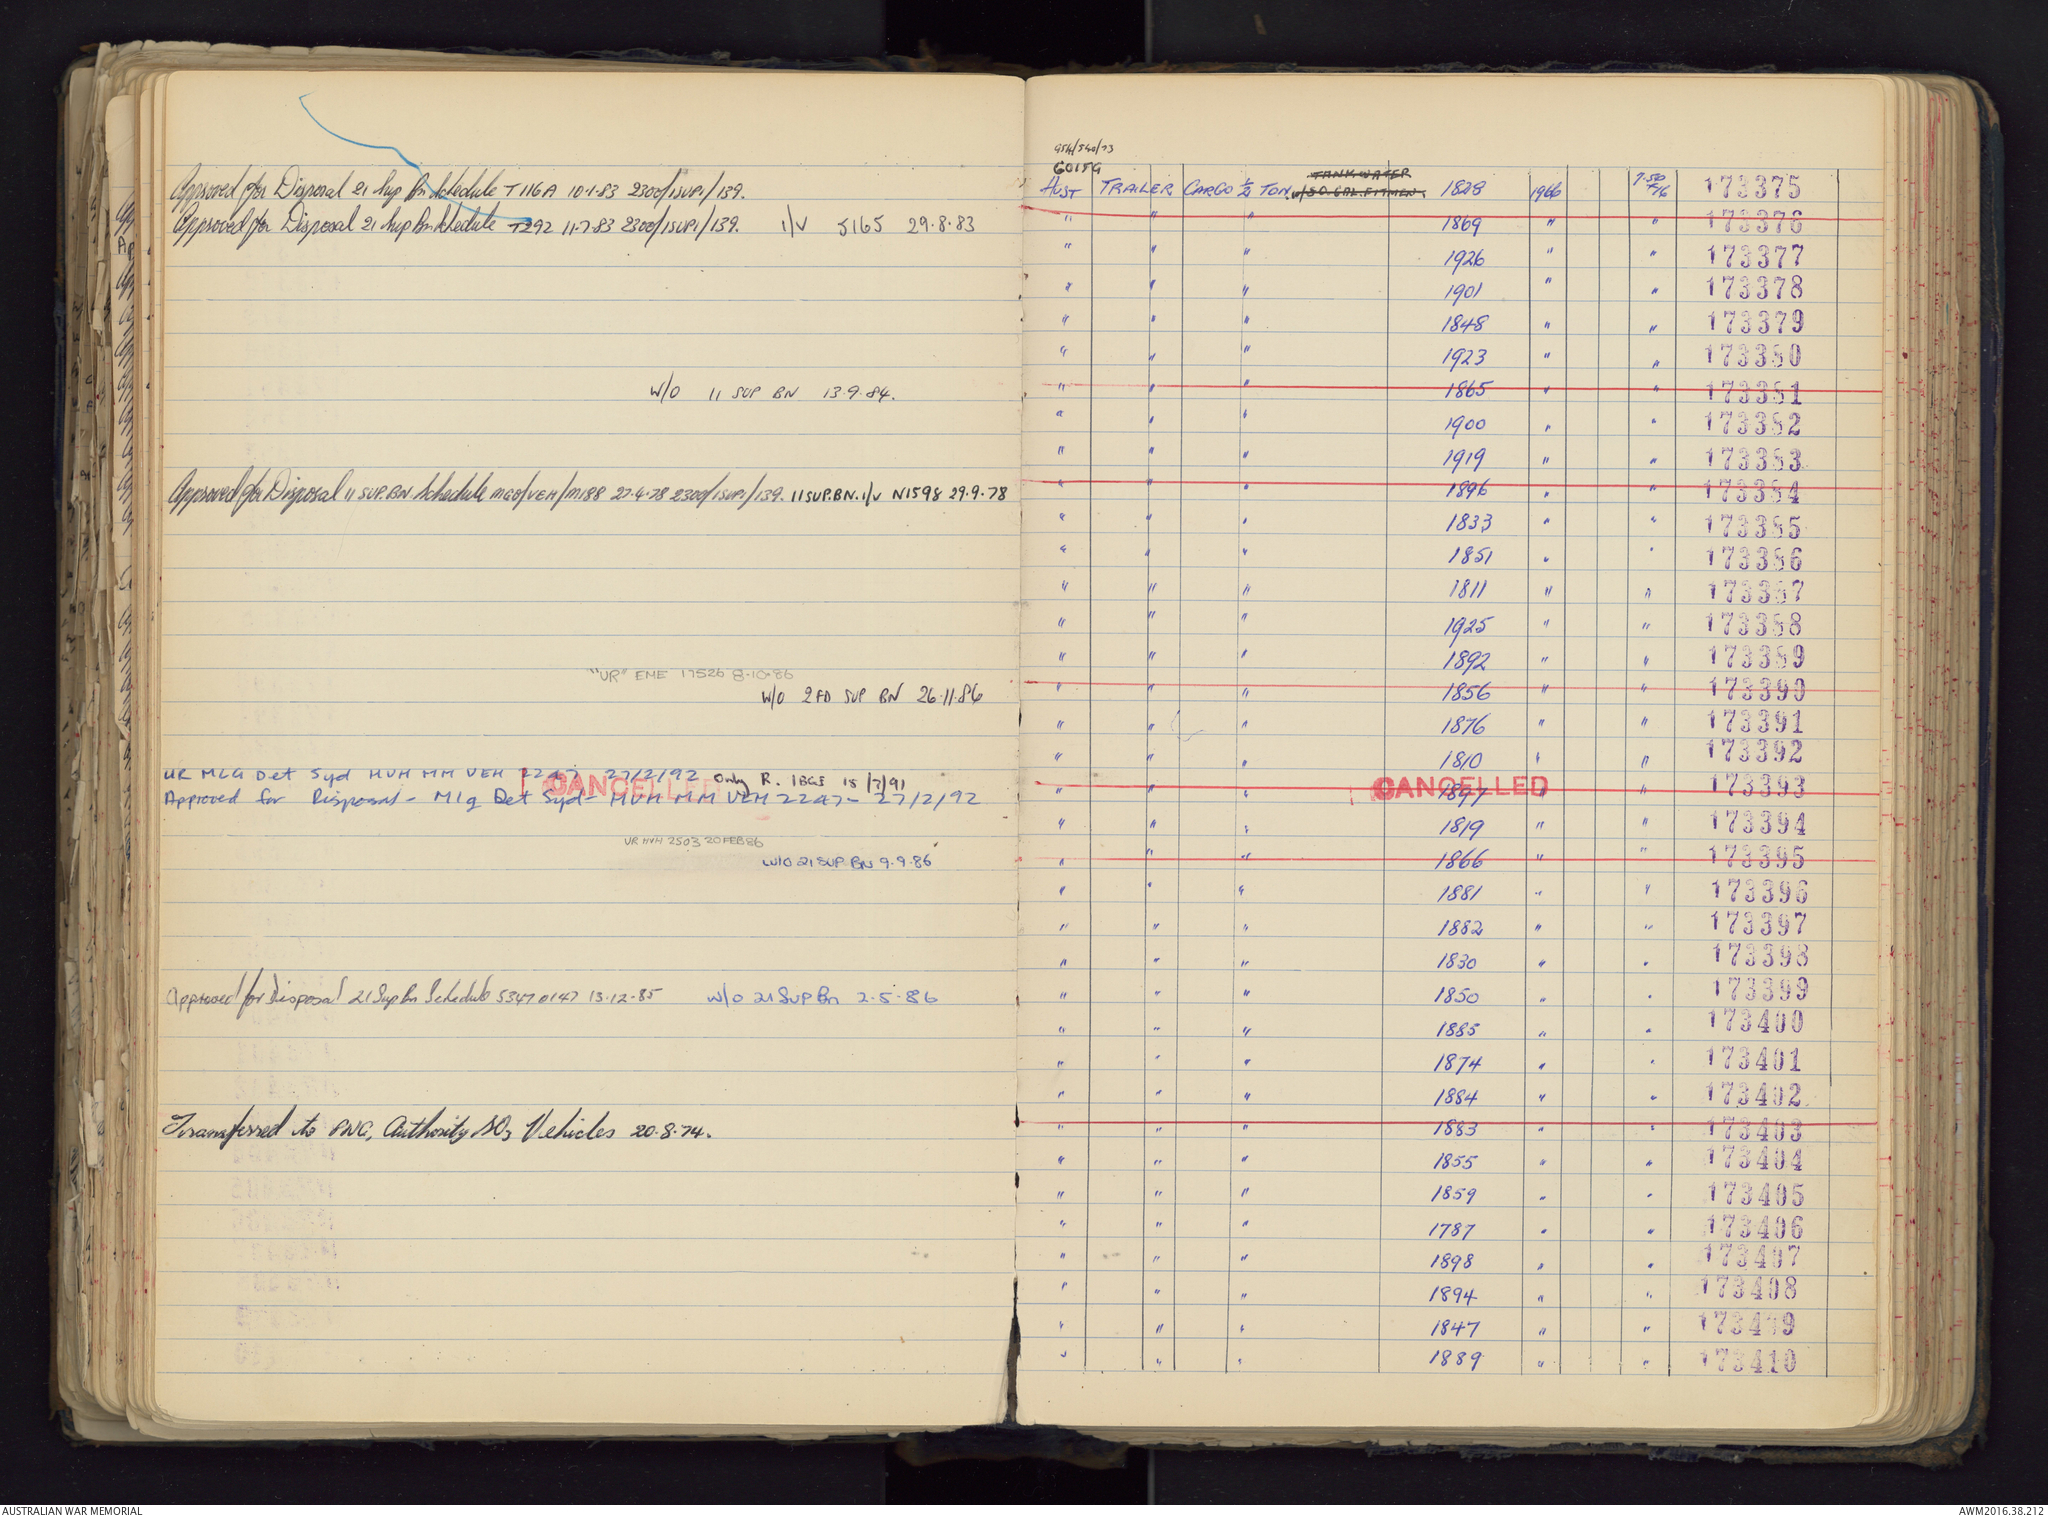 Approved for Disposal 21 Sup Bn Schedule T116A 10.1.83 2300/1SUP1/139.
Approved for Disposal 21 Sup Bn Schedule T292 11.7.83 2300/1SUP1/139. I/V 5165 29.8.83
W/O 11 SUP BN 13.9.84.
Approved for Disposal 11 SUP.BN Schedule MGO/VEH/M188 27.4.78 2300/1SUP1/139. 11 SUP.BN. I/V N1598 29.9.78
"UR" EME 17526 8.10.86
W/O 2 FD SUP BN 26.11.86
UR MLG Det Syd HVH MM VEH 2247 27/2/92 Only R. 1BGS 15/7/91
CANCELLED
Approved for Disposal - Mlg Det Syd - HVH MM VEH 2247 - 27/2/92
UR HVH 2503 20 FEB 86
W/O 21 SUP BN 9.9.86
Approved for Disposal 21 Sup Bn Schedule 5347 0147 13.12.85 W/O 21 Sup Bn 2.5.86
Transferred to PNG, Authority SO3 Vehicles 20.8.74.
954/540/73
G015G
AUST TRAILER CARGO ½ TON. TANK WATER w/50.GAL.FITMENT. 1828 1966 7.50/16 173375
" " " 1869 " " 173376
" " " 1926 " " 173377
" " " 1901 " " 173378
" " " 1848 " " 173379
" " " 1923 " " 173380
" " " 1865 " " 173381
" " " 1900 " " 173382
" " " 1919 " " 173383
" " " 1896 " " 173384
" " " 1833 " " 173385
" " " 1851 " " 173386
" " " 1811 " " 173387
" " " 1925 " " 173388
" " " 1892 " " 173389
" " " 1856 " " 173390
" " " 1876 " " 173391
" " " 1810 " " 173392
" " " CANCELLED 1897 " " 173393
" " " 1819 " " 173394
" " " 1866 " " 173395
" " " 1881 " " 173396
" " " 1882 " " 173397
" " " 1830 " " 173398
" " " 1850 " " 173399
" " " 1885 " " 173400
" " " 1874 " " 173401
" " " 1884 " " 173402
" " " 1883 " " 173403
" " " 1855 " " 173404
" " " 1859 " " 173405
" " " 1787 " " 173406
" " " 1898 " " 173407
" " " 1894 " " 173408
" " " 1847 " " 173409
" " " 1889 " " 173410
AUSTRALIAN WAR MEMORIAL
AWM2016.38.212